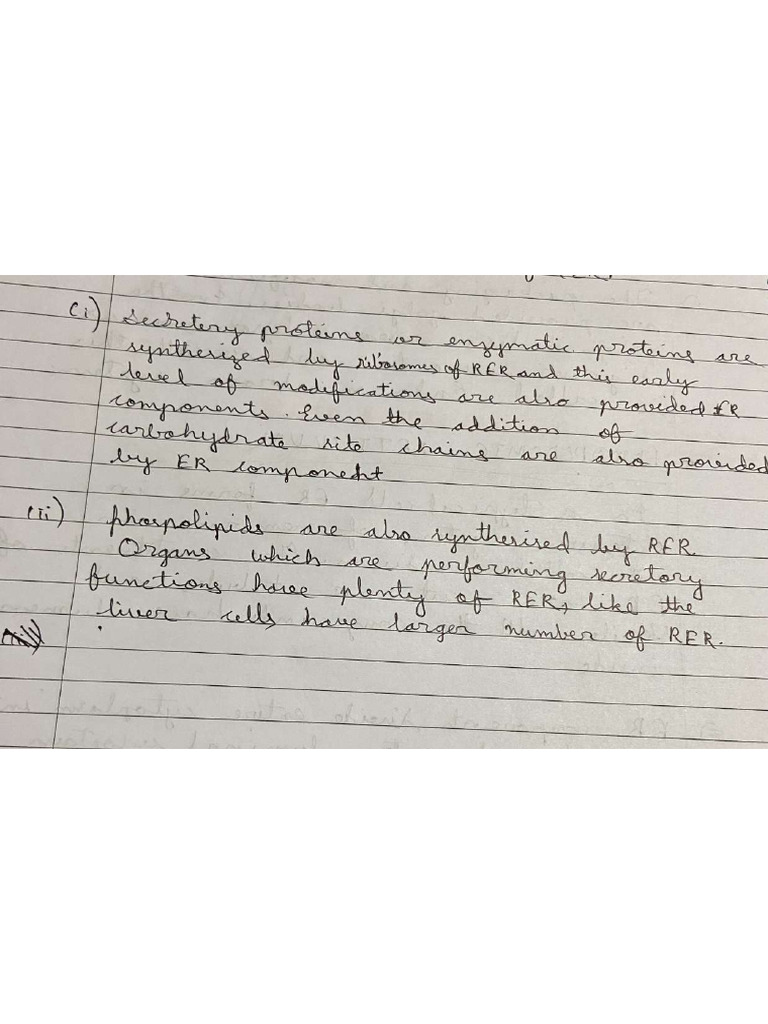 (i) Secretery proteins or enzymatic proteins are
synthesized by ribosomes of RER and this early
level of modifications are also provided ER
components. Even the addition of
carbohydrate site chains are also provided
by ER component
(ii) phospolipids are also synthesised by RER
Organs which are performing secretory
functions have plenty of RER, like the
liver cells have larger number of RER.